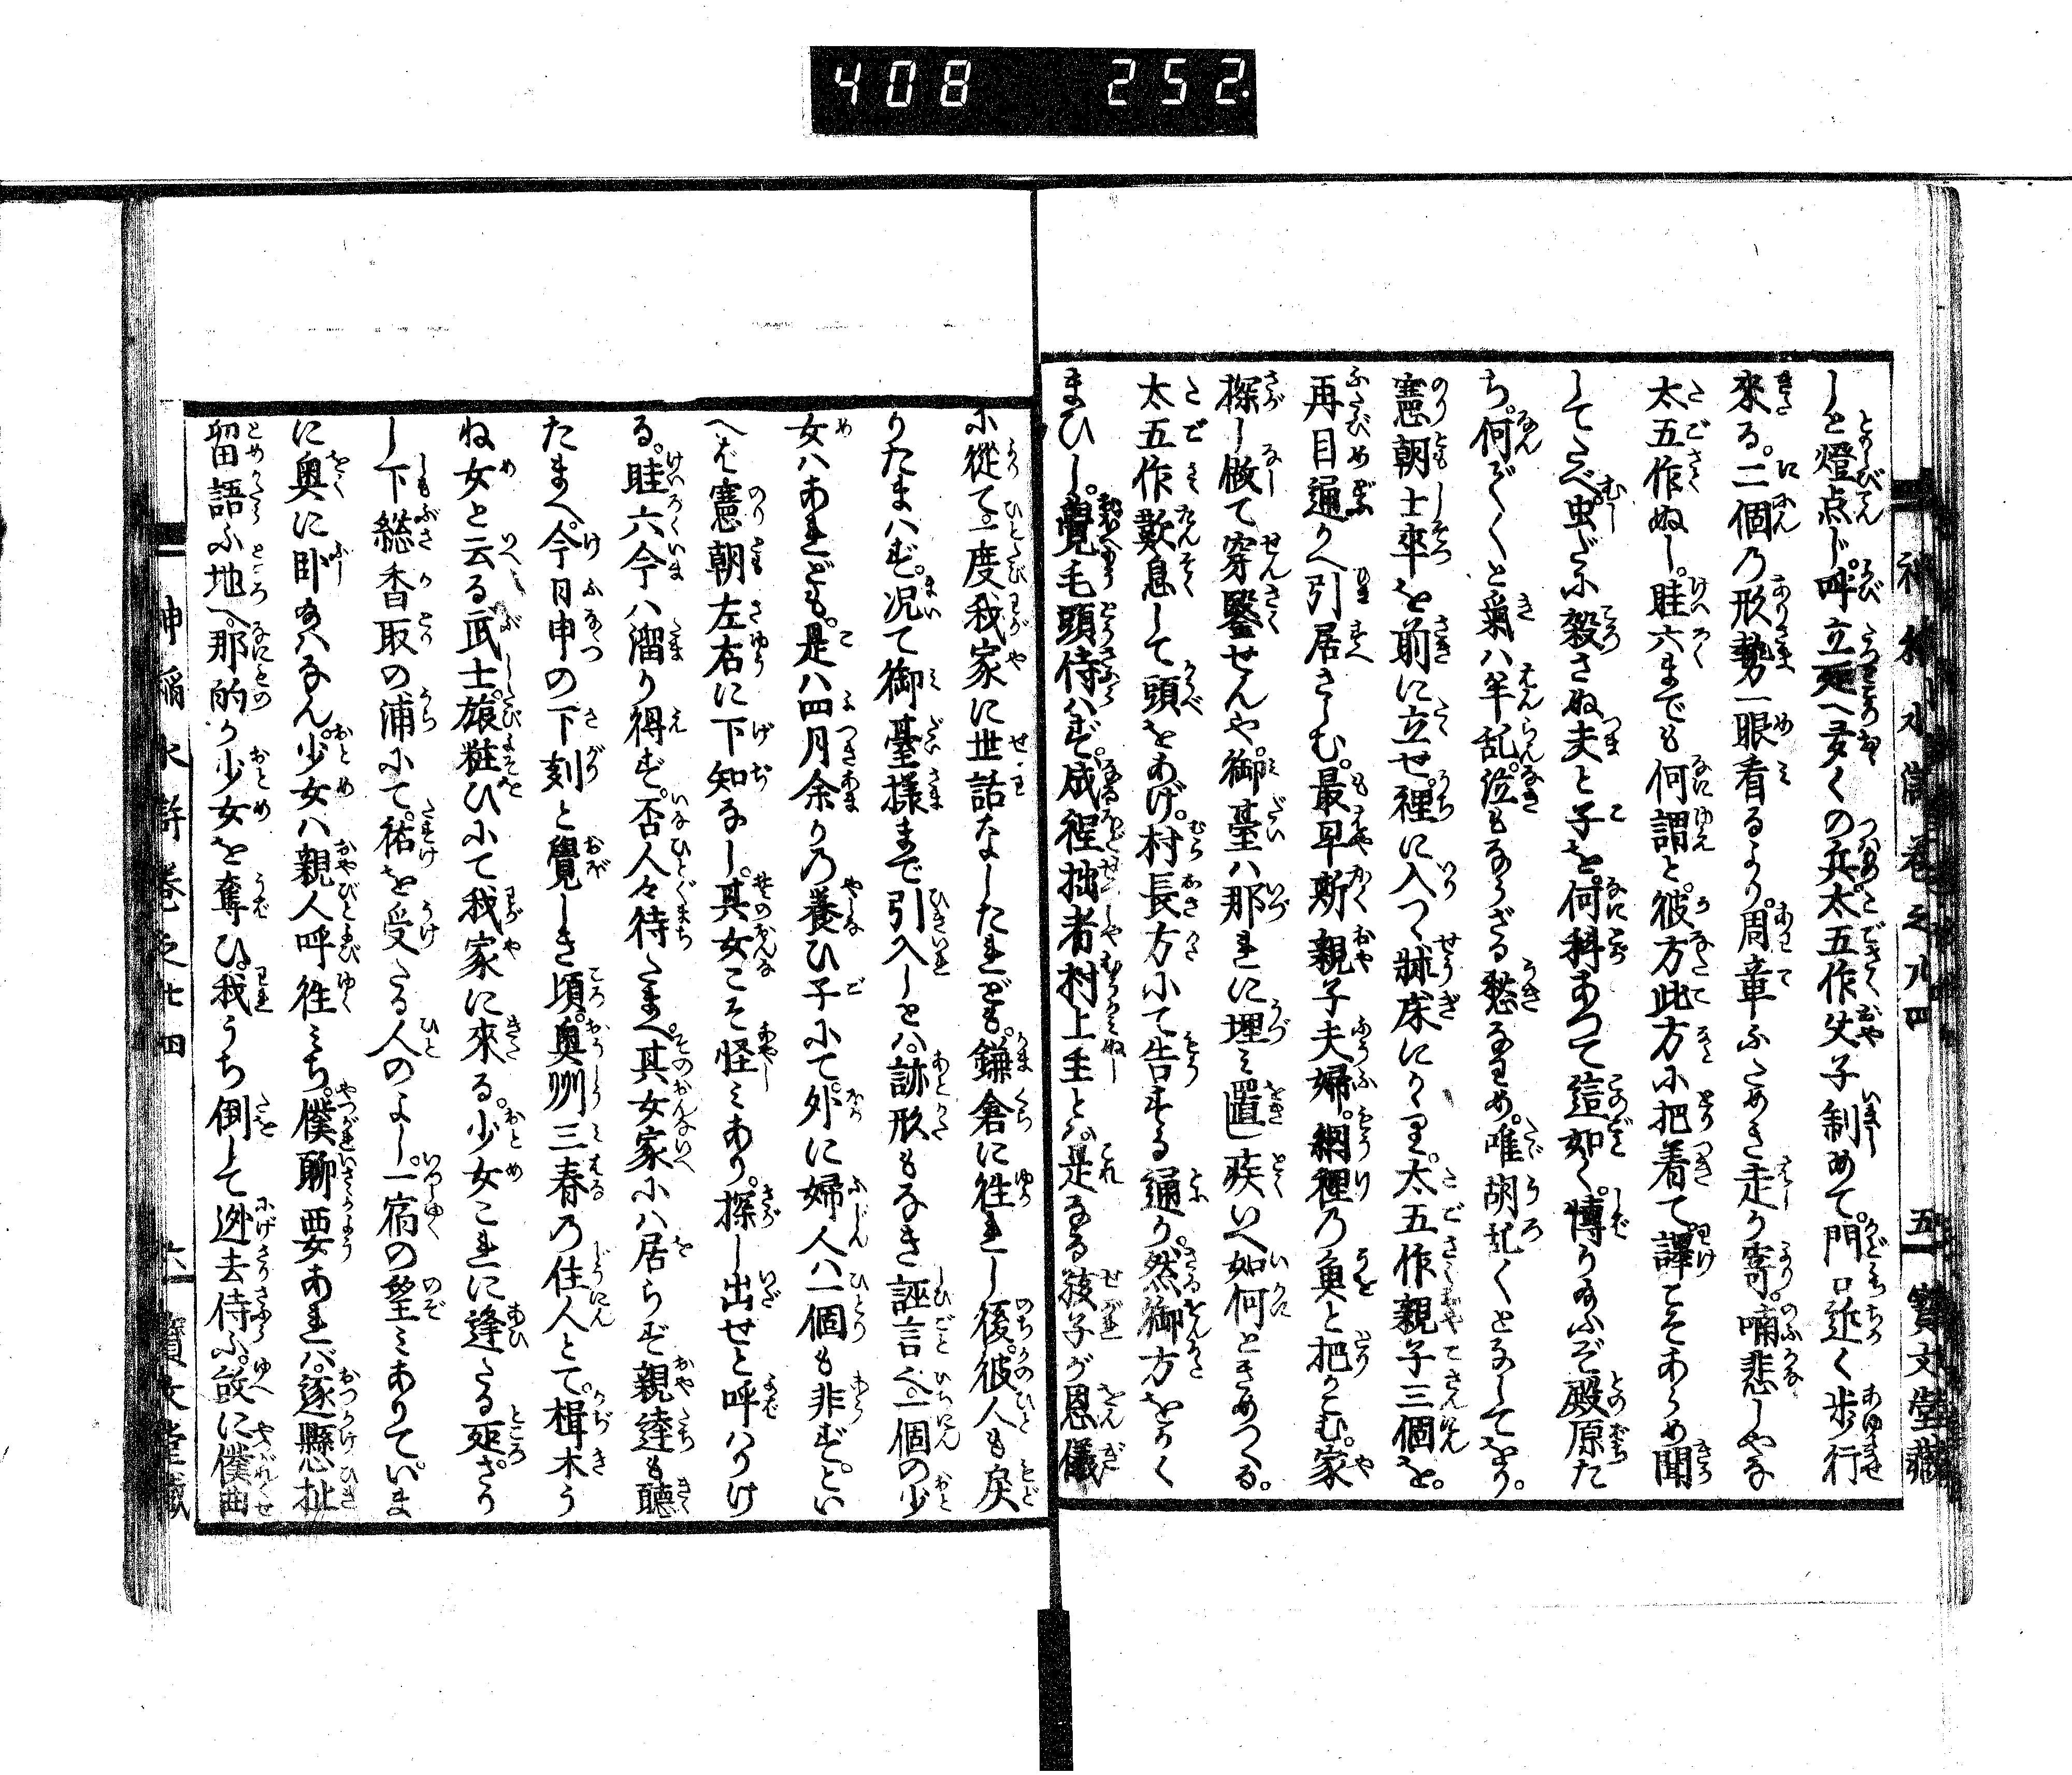 408 252.
しと燈点じ。呼立死へ多くの兵。太五作父子制めて。門口近く歩行
來る。二個乃形勢一眼看るより。周章ふためき走り寄。喃悲しやな
太五作ぬし。畦六までも何謂と。彼方此方に把着て譯こそあらめ聞
してたべ虫だに殺さぬ夫と子を。何科あつて這如く。愽り給ふぞ殿原た
ち。何ぞくと氣ハ半乱。泣もならざる愁なりめ。唯胡乱くとなしてをり。
憲朝士卒を前に立せ。裡に入つ牀床にかゝり。太五作親子三個を。
再目通りへ引居さしむ。最早斯親子夫婦。網裡乃魚と把りこむ。家
探し做て穿鑿せんや。御臺ハ那里に埋ミ置し疾いへ如何ときめつくる。
太五作歎息して頭をあげ。村長方にて告たる通り。然御方をかく
まひし。覺毛頭侍ハず。成程拙者村上圭とハ。是なる孩子が恩儀
に從て。一度我家に世話なしたれども。鎌倉に徃れし後。彼人も戻
りたまハず。况て御臺様まで引入しとハ。跡形もなき誣言。一個の少
女ハあれども。是ハ四月余り乃養ひ子にて。外に婦人ハ一個も非ずとい
へど憲朝左右に下知なし。其女こそ怪ミあり。探し出せと呼ハりけ
る。畦六今ハ溜り得ず。否人々待たまへ。其女家にハ居らず親達も聽
たまへ。今日申の下刻と覺しき頃。奥州三春乃住人とて。楫木う
ね女と云る武士。旅粧ひにて我家に來る。少女これに逢たる死。さう
し下総香取の浦にて。祐を受たる人のよし。一宿の望ミありて。いま
に奥に卧給ハなん。少女ハ親人呼徃ミち。僕聊要あれバ。逐懸扯
留語ふ地へ。那的り少女を奪ひ。我うち倒して迯去侍ふ。故に僕曲
神稲水滸卷之廿四 五 寶文堂藏
神稲水滸卷之廿四 六 寶文堂藏